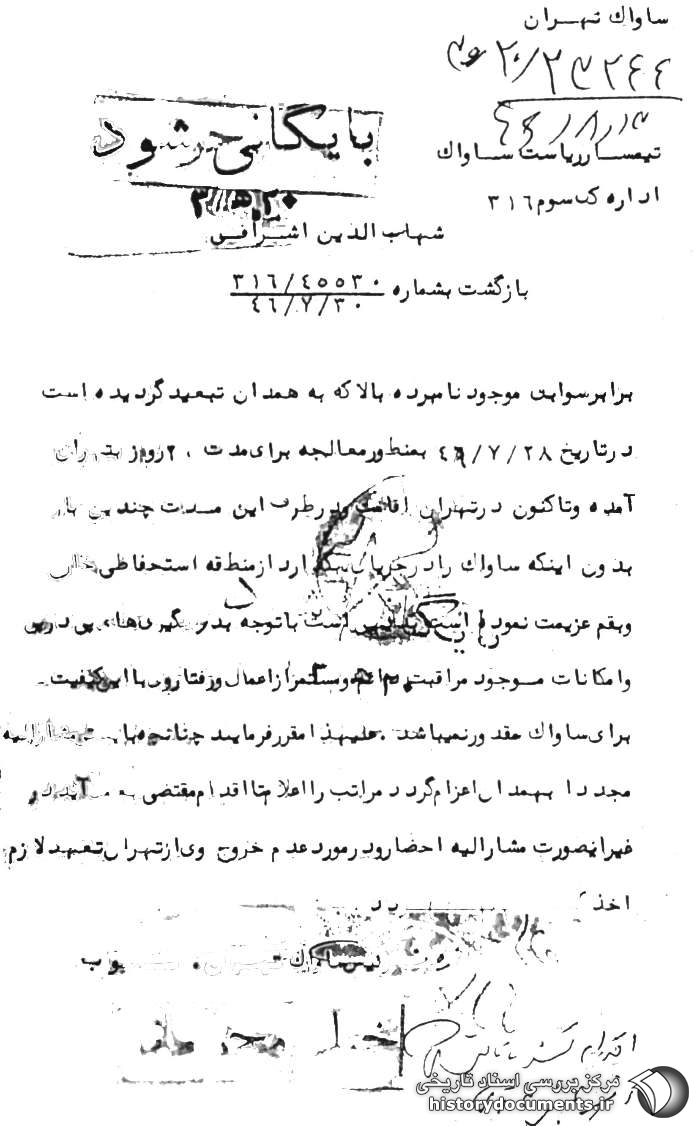 ساواك تهران
۲۰/۲۳۲۴۴
۴۶/۸/۳
بایگانی شود
تیمسار ریاست ساواك
اداره کل سوم ۳۱۶
۳۰ ه ۳
شهاب الدین اشراقی
بازگشت بشماره ۳۱۶/۴۵۵۳۰
۴۶/۷/۳۰
برابر سوابق موجود نامبرده بالا که به همدان تبعید گردیده است
در تاریخ ۴۶/۷/۲۸ بمنظور معالجه برای مدت ۲۰ روز بتهران
آمده و تاکنون در تهران اقامت و در ظرف این مدت چندین بار
بدون اینکه ساواك را در جریان بگذارد از منطقه استحفاظی خارج
و بقم عزیمت نموده است بدیهی است با توجه بدرگیری های
و امکانات موجود مراقبت دائم و مستمر از اعمال و رفتار وی با این کیفیت
برای ساواك مقدور نمیباشد . علیهذا مقرر فرمایند چنانچه مشارالیه
مجددا بهمدان اعزام گردد مراتب را اعلام تا اقدام مقتضی بعمل آید و در
غیر اینصورت مشارالیه احضار و در مورد عدم خروج وی از تهران تعهد لازم
اخذ گردد
رئیس ساواك تهران . نواب
اقدام
مرکز بررسی اسناد تاریخی
historydocuments.ir